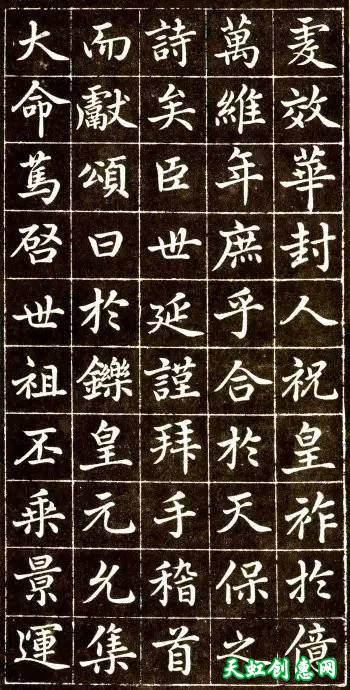 爰效華封人祝皇祚於億
萬維年庶乎合於天保之
詩矣臣世延謹拜手稽首
而獻頌曰於鑠皇元允集
大命篤啓世祖丕乘景運
天虹创意网